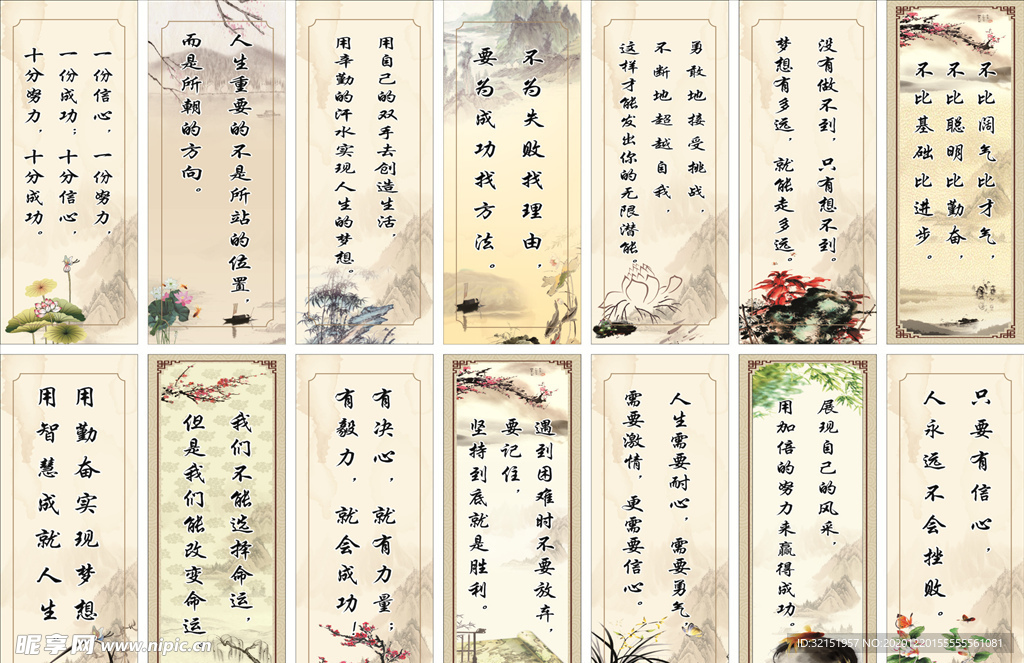 一份信心，一份努力，
一份成功；十分信心，
十分努力，十分成功。
人生重要的不是所站的位置，
而是所朝的方向。
用自己的双手去创造生活，
用辛勤的汗水实现人生的梦想。
不为失败找理由，
要为成功找方法。
勇敢地接受挑战，
不断地超越自我，
这样才能发出你的无限潜能。
没有做不到，只有想不到。
梦想有多远，就能走多远。
不比阔气比才气，
不比聪明比勤奋，
不比基础比进步。
用勤奋实现梦想
用智慧成就人生
我们不能选择命运，
但是我们能改变命运
有决心，就有力量；
有毅力，就会成功！
遇到困难时不要放弃，
要记住，
坚持到底就是胜利。
人生需要耐心，需要勇气，
需要激情，更需要信心。
展现自己的风采，
用加倍的努力来赢得成功。
只要有信心，
人永远不会挫败。
昵享网 www.nipic.cn
ID:32151957 NO:20201220155555561081